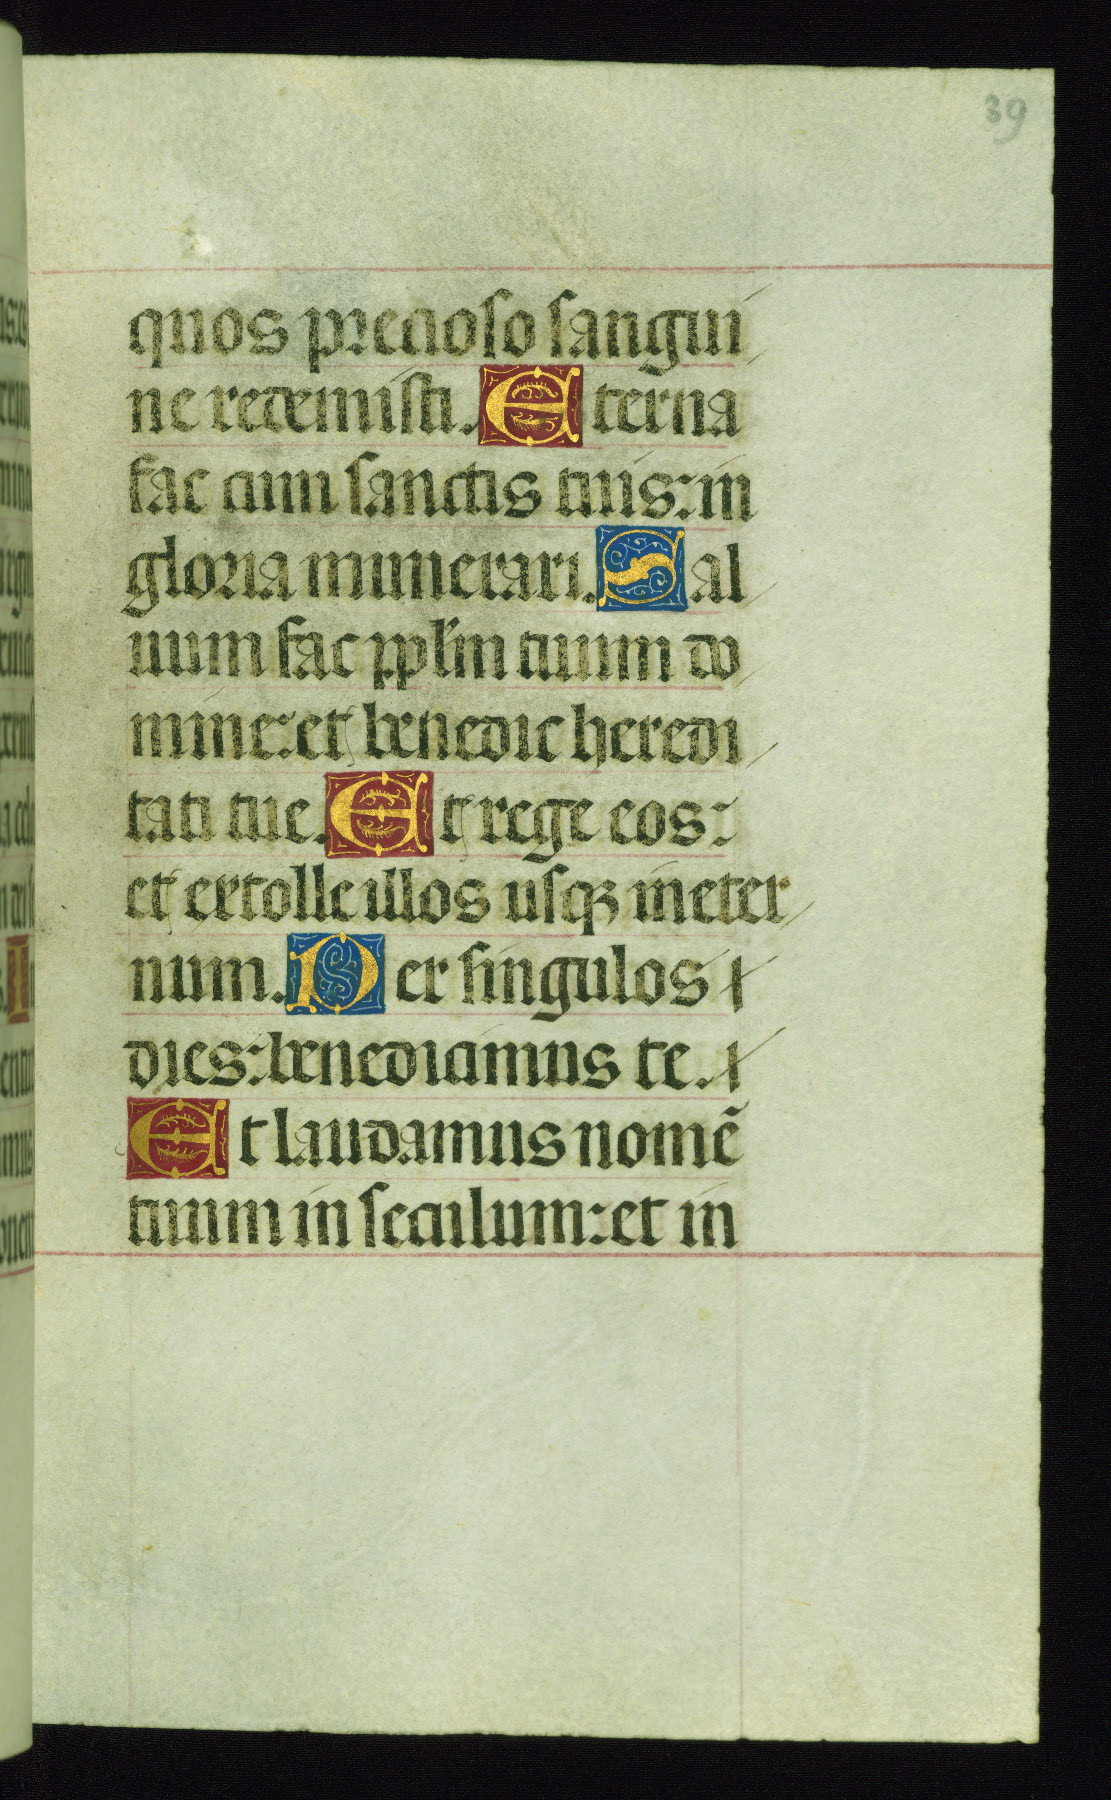 39
quos precioso sangui
ne redemisti. Eterna
fac cum sanctis tuis: in
gloria munerari. Sal
uum fac pplm tuum do
mine: et benedic heredi
tati tue. Et rege eos:
et extolle illos usqꝫ in eter
num. Per singulos
dies: benedicimus te.
Et laudamus nomẽ
tuum in seculum: et in